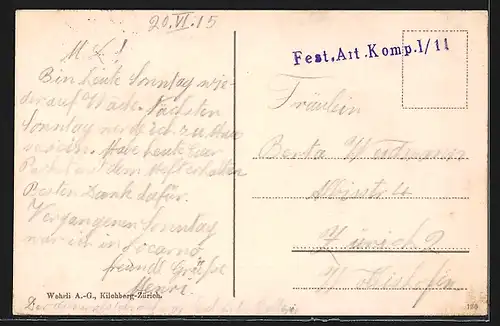 20.VI.15
M. L.!
Bin heute Sonntag wie-
der auf Wache. Nächsten
Sonntag werde ich zu Hause
sein. Habe heute Euer
Packet mit dem Heft erhalten
Besten Dank dafür.
Vergangenen Sonntag
war ich in Locarno
freundl. Grüße
Henri.
Wehrli A.-G., Kilchberg-Zürich.
Fest. Art. Komp. I/11
Fräulein
Berta Weidmann
Albisstr.
Zürich 2
Wollishofen